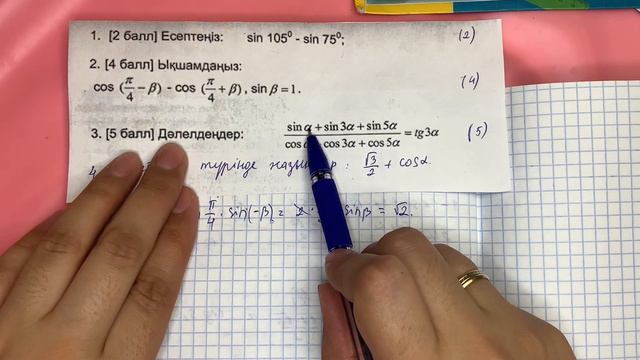 1. [2 балл] Есептеңіз: sin 105⁰ - sin 75⁰; (2)
2. [4 балл] Ықшамдаңыз: (4)
cos (π/4 − β) - cos (π/4 + β), sin β = 1.
3. [5 балл] Дәлелдеңдер: (sin α + sin 3α + sin 5α)/(cos α cos 3α + cos 5α) = tg3α (5)
4. түрінде √3/2 + cosα.
π/4 · sin(−β) = 2 · sinβ = √2.